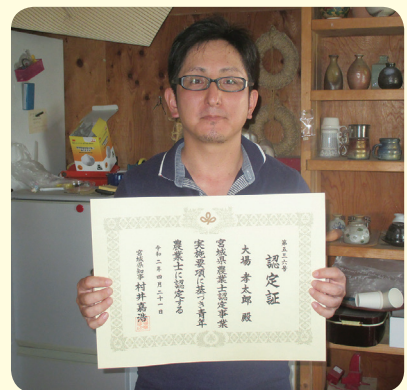 第五三六号
認定証
大場 孝太郎 殿
宮城県農業士認定事業
実施要項に基づき青年
農業士に認定する
令和二年四月二十一日
宮城県知事 村井嘉浩